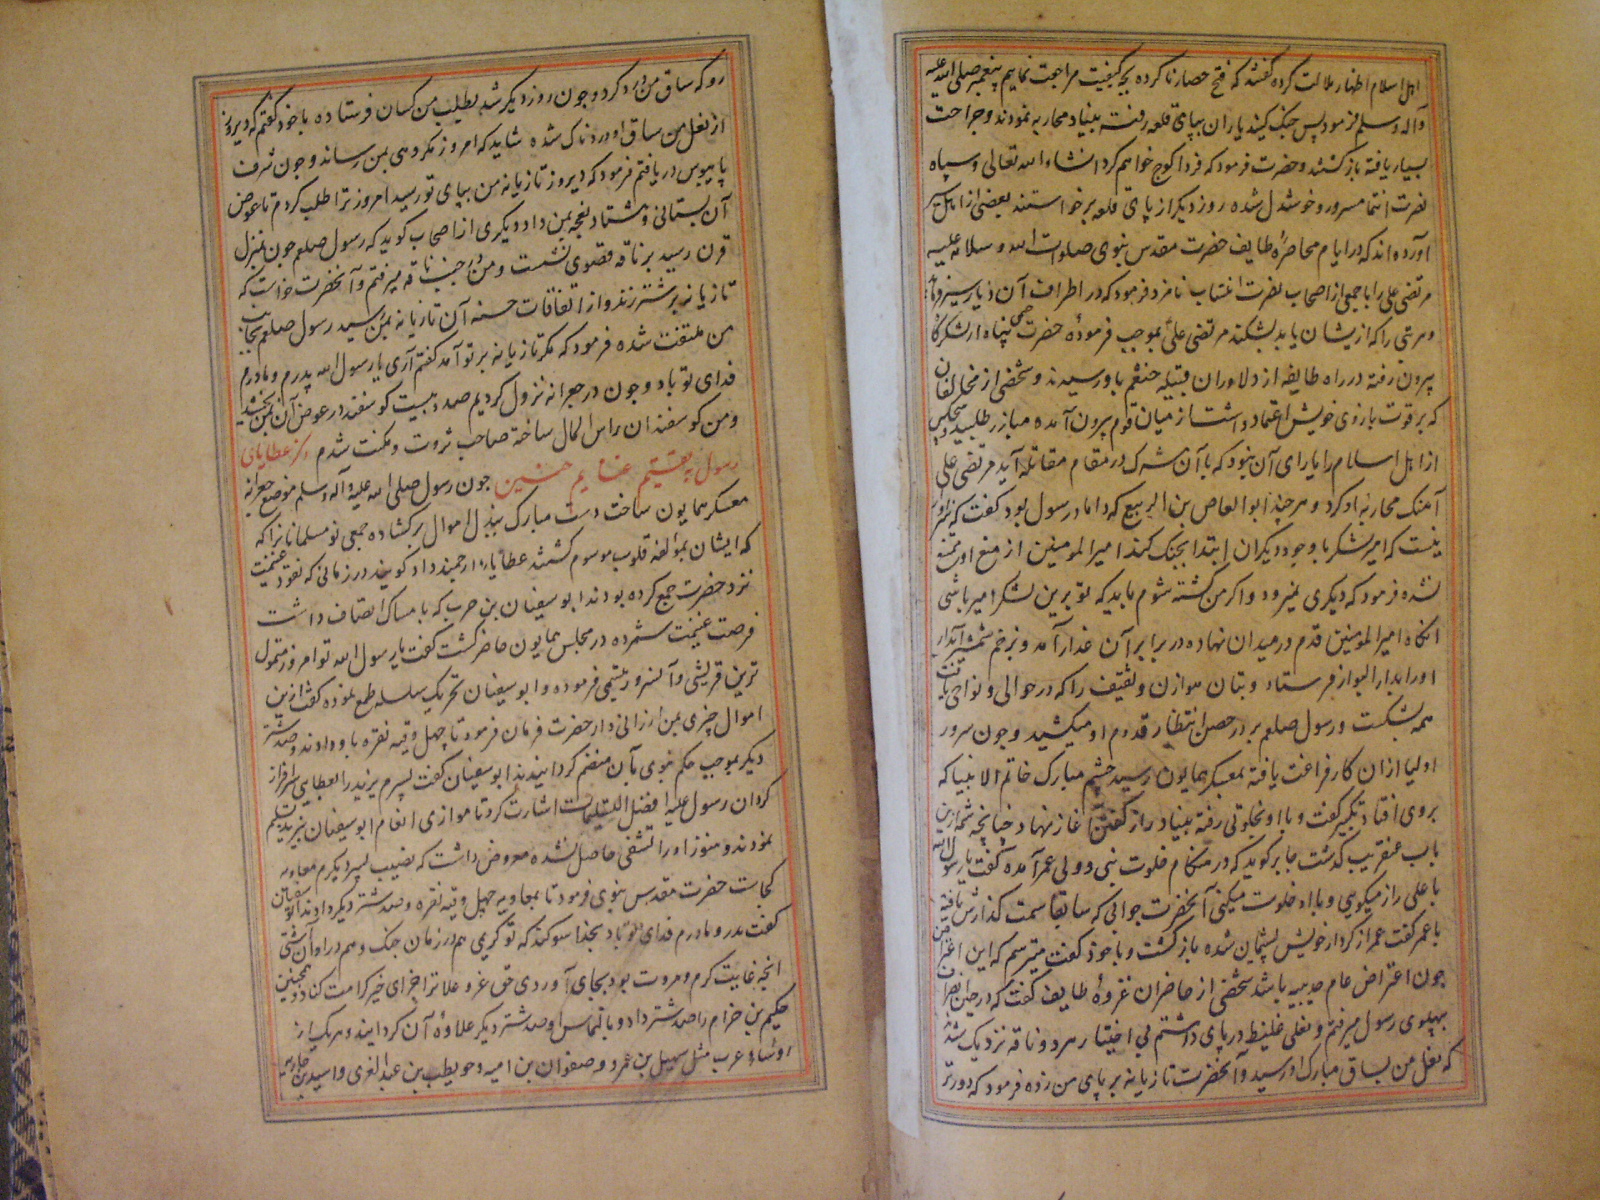 اهل اسلام اظهار ملالت کرده گفتند که فتح حصار ناکرده بچه کیفیت مراجعت نماییم پیغمبر صلی الله علیه
وآله وسلم فرمود پس جنک کنید یاران بپای قلعه رفته بنیاد محاربه نمودند و جراحت
بسیار یافته بازکشتند و حضرت فرمود که فردا کوچ خواهم کرد انشاء الله تعالی و سپاه
نصرت انتما مسرور و خوشدل شده روز دیکر از پای قلعه برخواستند بعضی از اهل سیر
آورده‌اند که در ایام محاصره طایف حضرت مقدس نبوی صلوات الله و سلامه علیه
مرتضی علی را با جمعی از اصحاب نصرت انتساب نامزد فرمود که در اطراف آن دیار سیر فرماید
و هر بتی را که از یشان یابد بشکند مرتضی علی بموجب فرموده حضرت پناه از لشکرکاه
بیرون رفته در راه طایفه از دلاوران قبیله خثعم باو رسیدند و شخصی از مخالفان
که بر قوت بازوی خویش اعتماد داشت از میان قوم بیرون آمده مبارز طلبید و هیچکس
از اهل اسلام را یارای آن نبود که با آن مشرک در مقام مقاتله آید مرتضی علی
آهنک محاربه او کرد و هر چند ابو العاص بن الربیع که داماد رسول بود کفت که سزاوار
نیست که امیر لشکر با وجود دیکران ابتدا بجنک کند امیر المومنین از منع او ممتنع
نشده فرمود که دیکری نمیرود و اکر من کشته شوم باید که تو برین لشکر امیر باشی
انکاه امیر المومنین قدم در میدان نهاده در برابر آن غدار آمد و بزخم شمشیر آبدار
او را بدار البوار فرستاد و بتان هوازن و ثقیف را که در حوالی و نواحی یافت
همه بشکست و رسول صلعم بر در حصن انتظار قدوم او میکشید و چون سرور
اولیا از ان کار فراغت یافته بمعسکر همایون رسید چشم مبارک خاتم الانبیا که
بروی افتاد تکبیر گفت و با او بخلوتی رفته بنیاد راز کفتن آغاز نهاد چنانچه شمه ازین
باب عنقریب کذشت جابر کوید که در هنکام خلوت نبی و ولی عمر آمده کفت یا رسول الله
با علی راز میکویی و با او خلوت میکنی آنحضرت جوابی که سابقا سمت کذارش یافته
با عمر کفت عمر از کردار خویش پشیمان شده بازکشت و با خود کفت میترسم که این اعتراض من
چون اعتراض عام حدیبیه باشد شخصی از حاضران غزوه طایف کفت که در حین انصراف
بپهلوی رسول میرفتم و نعلی غلیظ در پای داشتم بی اختیار هر دو ناقه نزدیک شد
که نعل من بساق مبارک او رسید و آنحضرت تازیانه بر پای من زده فرمود که دورتر
رو که ساق من درد کرد و چون روز دیکر شد بطلب من کسان فرستاده با خود کفتم که دیروز
از نعل من ساق او دردناک شده شاید که امروز مکروهی بمن رساند و چون شرف
پابوس دریافتم فرمود که دیروز تازیانه من بپای تو رسید امروز ترا طلب کردم تا عوض
آن بستانی و هشتاد نعجه بمن داد و دیکری از اصحاب کوید که رسول صلعم چون بمنزل
قرن رسید بر ناقه قصوی نشست و من در جنب ناقه میرفتم و آنحضرت خواست که
تازیانه بر شتر زند و از اتفاقات حسنه آن تازیانه بمن رسید رسول صلعم بجانب
من ملتفت شده فرمود که مکر تازیانه بر تو آمد کفتم آری یا رسول الله پدرم و مادرم
فدای تو باد و چون در جعرانه نزول کردیم صد و بیست کوسفند در عوض آن بمن بخشید
و من کوسفندان براس المال ساخته صاحب ثروت و مکنت شدم ذکر عطایای
رسول بتقسیم غنایم حنین چون رسول صلی الله علیه وآله وسلم موضع جعرانه
معسکر همایون ساخت دست مبارک ببذل اموال برکشاده جمعی نو مسلمانان را که
که ایشان بمؤلفه قلوب موسوم کشتند عطایاء ارجمند داد کویند در زمانی که نقود غنیمت
نزد حضرت جمع کرده بودند ابو سفیان بن حرب که با مساک اتصاف داشت
فرصت غنیمت شمرده در مجلس همایون حاضر کشت کفت یا رسول الله تو امروز متمول
ترین قریشی و آنسرور تبسمی فرموده و ابو سفیان تحریک سلسله طمع نموده کفت ازین
اموال چیزی بمن ارزانی دار حضرت فرمان فرمود تا چهل وقیه نقره باو دادند و صد شتر
دیکر بموجب حکم نبوی بآن منضم کردانیدند ابو سفیان کفت پسرم یزید را بعطایی سرافراز
کردان رسول علیه افضل التسلیمات اشارت کرد تا موازی انعام ابو سفیان بیزید تسلیم
نمودند و هنوز او را تشفی حاصل نشده معروض داشت که نصیب پسر دیکرم معاویه
کجاست حضرت مقدس نبوی فرمود تا بمعاویه چهل وقیه نقره و صد شتر دیکر دادند ابو سفیان
کفت پدر و مادرم فدای تو باد بخدا سوکند که تو کریمی هم در زمان جنک و هم در اوان آشتی
انچه غایت کرم و مروت بود بجای آوردی حق عز و علا ترا جزای خیر کرامت کناد و همچنین
حکیم بن حزام را صد شتر داد و بالتماس او صد شتر دیکر علاوه آن کردانید و هر یک از
روساء عرب مثل سهیل بن عمرو و صفوان بن امیه و حویطب بن عبد العزی و اسید بن جاریه